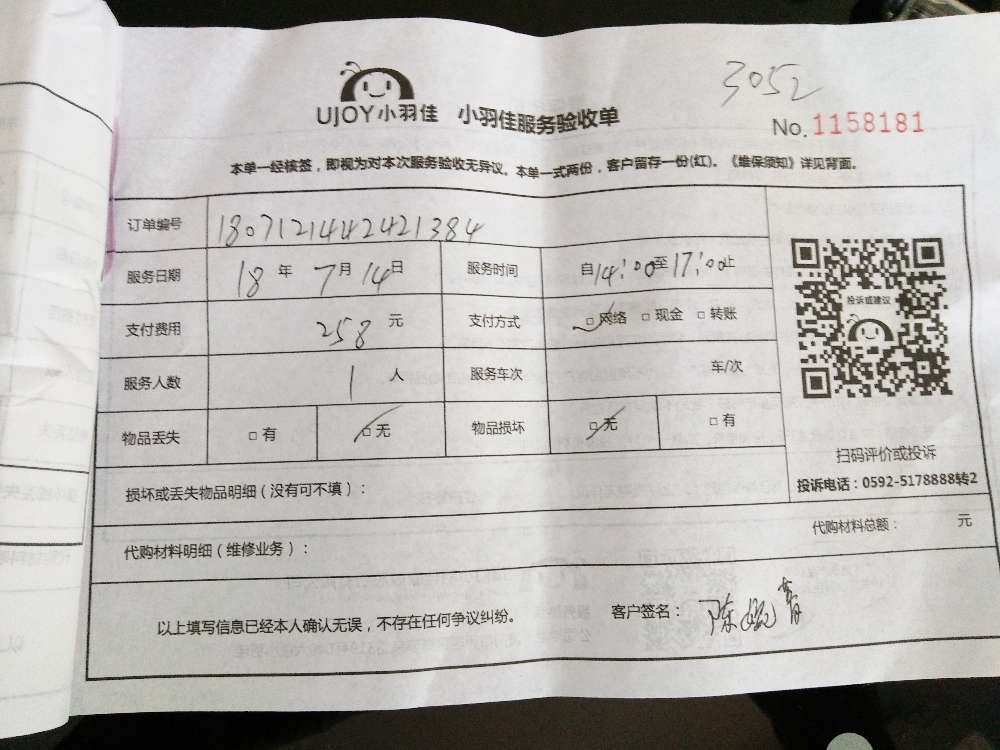 3052
UJOY小羽佳 小羽佳服务验收单
No.1158181
本单一经核签，即视为对本次服务验收无异议。本单一式两份，客户留存一份(红)。《维保须知》详见背面。
订单编号 1807121442421384
服务日期 18年7月14日 服务时间 自14:00至17:00止
支付费用 258元 支付方式 □网络 □现金 □转账
服务人数 1人 服务车次 车/次
物品丢失 □有 □无 物品损坏 □无 □有
投诉或建议
扫码评价或投诉
投诉电话：0592-5178888转2
损坏或丢失物品明细（没有可不填）：
代购材料明细（维修业务）： 代购材料总额： 元
以上填写信息已经本人确认无误，不存在任何争议纠纷。 客户签名：陈